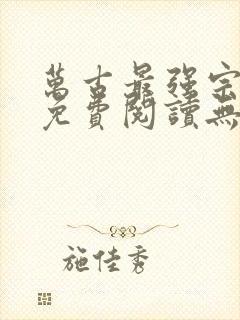 萬古最強宗
免費閱讀無
施佳秀